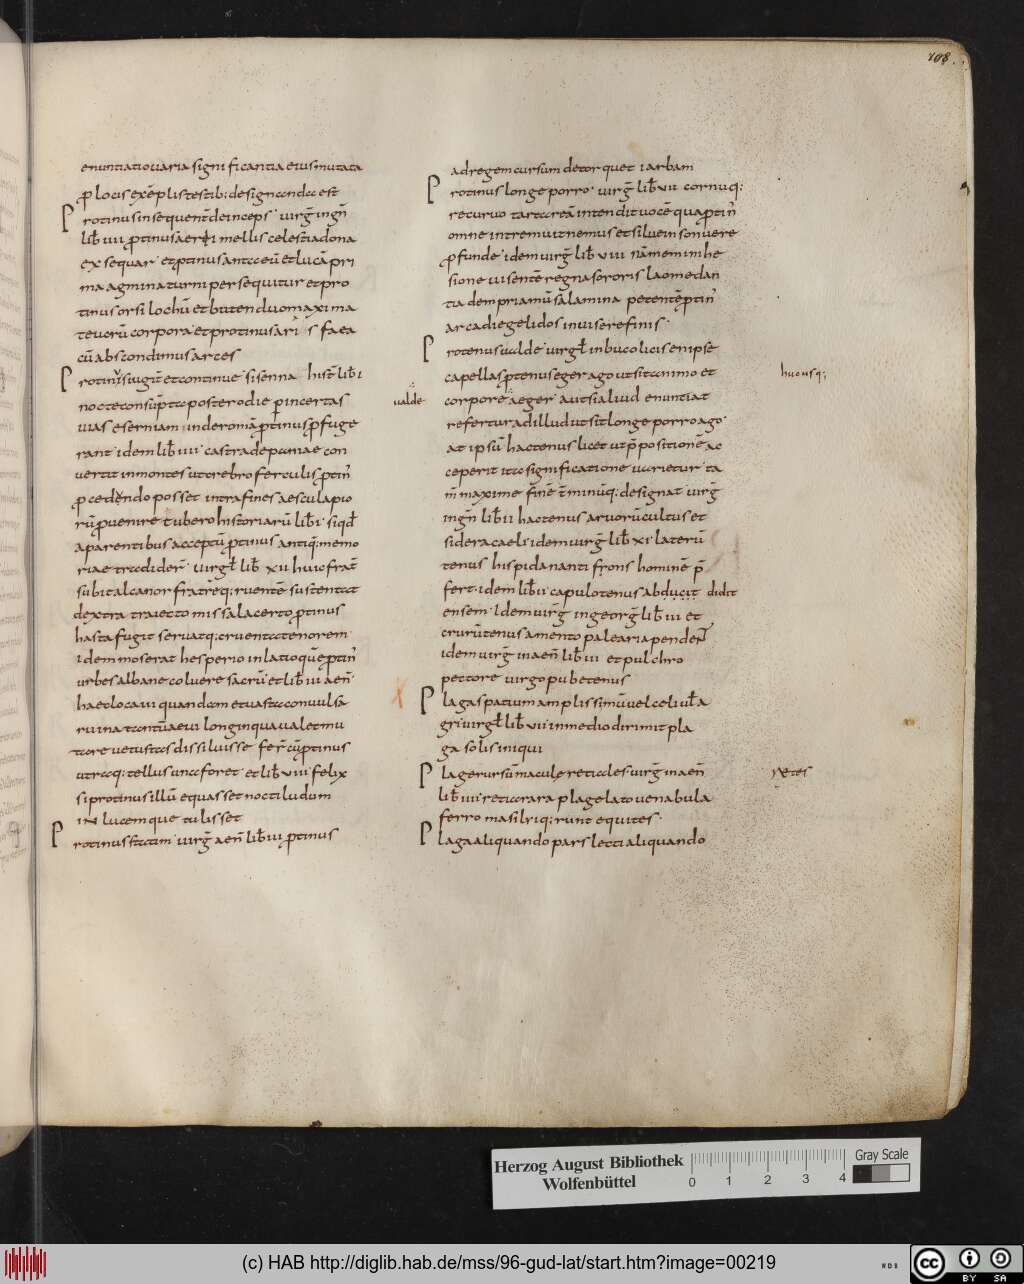 108.
enuntiatiouaria significantia eiusmutata
p̱ locis exē̄plis testib; designanda est
Protinus insequent̄ deinceps uirḡ inḡn
lib̄ iiii p̱tinus aerii mellis celestia dona
exsequar et p̱tinus antaeū et lucā pri
ma agmina turni persequitur et pro
tinus orsilochū et buten duo maxima
teucrū corpora et protinus arcis faea
cū abscondimus arces
Protinus iugit̄ et continue sisenna hist̄ lib̄ i
nocte consūpta postero die p̱ incertas
uias eserniam inde romā p̱tinus p̱fuge
rant idem lib̄ iiii castra deplanae con
uertit in montes ut crebro ferculis p̱tin̄
p̱cedendo posset intra fines aesculapio
rū p̱uenire tubero historiarū lib̄ i siqd̄
a parentibus acceptū p̱tinus antiq; memo
riae tradider̄ uirgł lib̄ xii huic frat̄
subit alcanor fratrēq; ruent̄e sustentat
dextra traiecto missa lacerto p̱tinus
hasta fugit seruatq; cruenta tenorem
idem moserat hesperio in latio quē p̱tin̄
urbes albane coluere sacrū et lib̄ iii aen̄
haec loca ui quondam et uasta conuulsa
ruina tantū aeui longinqua ualet mu
tare uetustas dissiluisse fer̄ cū p̱tinus
utraq; tellus una foret et lib̄ viiii felix
si protinus illū equasset nocti ludum
in lucemque tulisset
Protinus statim uirḡ aen̄ lib̄ vii p̱tinus
ad regem cursum detorquet iarbam
Protinus longe porro uirḡ lib̄ vii cornuq;
recuruo tartareā intendit uocē qua p̱tin̄
omne intremuit nemus et siluae insonuere
p̱funde idem uirḡ lib̄ viii nā memini he
sione uisentē regna sororis laomedan
tia dem priamū salamina petentē p̱tin̄
arcadie gelidos inuisere finis
Protenus ualde uirgł in bucolicis en ipse
capellas p̱tenus eger ago ut sit animo et
ualde
corpore aeger aut si aliud enuntiat
refertur ad illud ut sit longe porro ago
hucusq;
at ipsū hactenus licet ut p̱positionē ac
ceperit ita significatione uarietur ta
m̄ maxime fine t̄minūq; designat uirḡ
inḡn lib̄ ii hactenus aruorū cultus et
sidera caeli idem uirḡ lib̄ xi laterū
tenus hispida nanti frons hominē p̱
fert idem lib̄ ii capulo tenus abducit didit
ensem idem uirḡ in georḡ lib̄ iii et
crurū tenus a mento palearia pendent
idem uirḡ in aen̄ lib̄ iii et pulchro
pectore uirgo pubetenus
Plaga spatium amplissimū uel celi uł a
gri uirgł lib̄ vii in medio dirimit pla
ga solis iniqui
Plage rursū macule retiales uirḡ in aen̄
retes
lib̄ iiii reti a rara plage lato uenabula
ferro masiliiq; runt equites
Plaga aliquando pars lecti aliquando
Herzog August Bibliothek
Wolfenbüttel
0 1 2 3 4
Gray Scale
(c) HAB http://diglib.hab.de/mss/96-gud-lat/start.htm?image=00219
WDB
cc BY SA